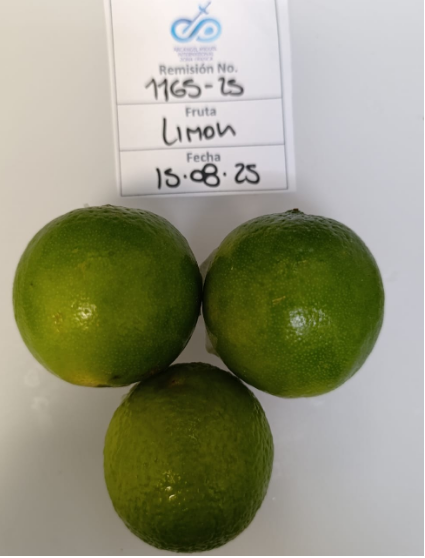 Remisión No.
1165-25
Fruta
Limon
Fecha
15.08.25